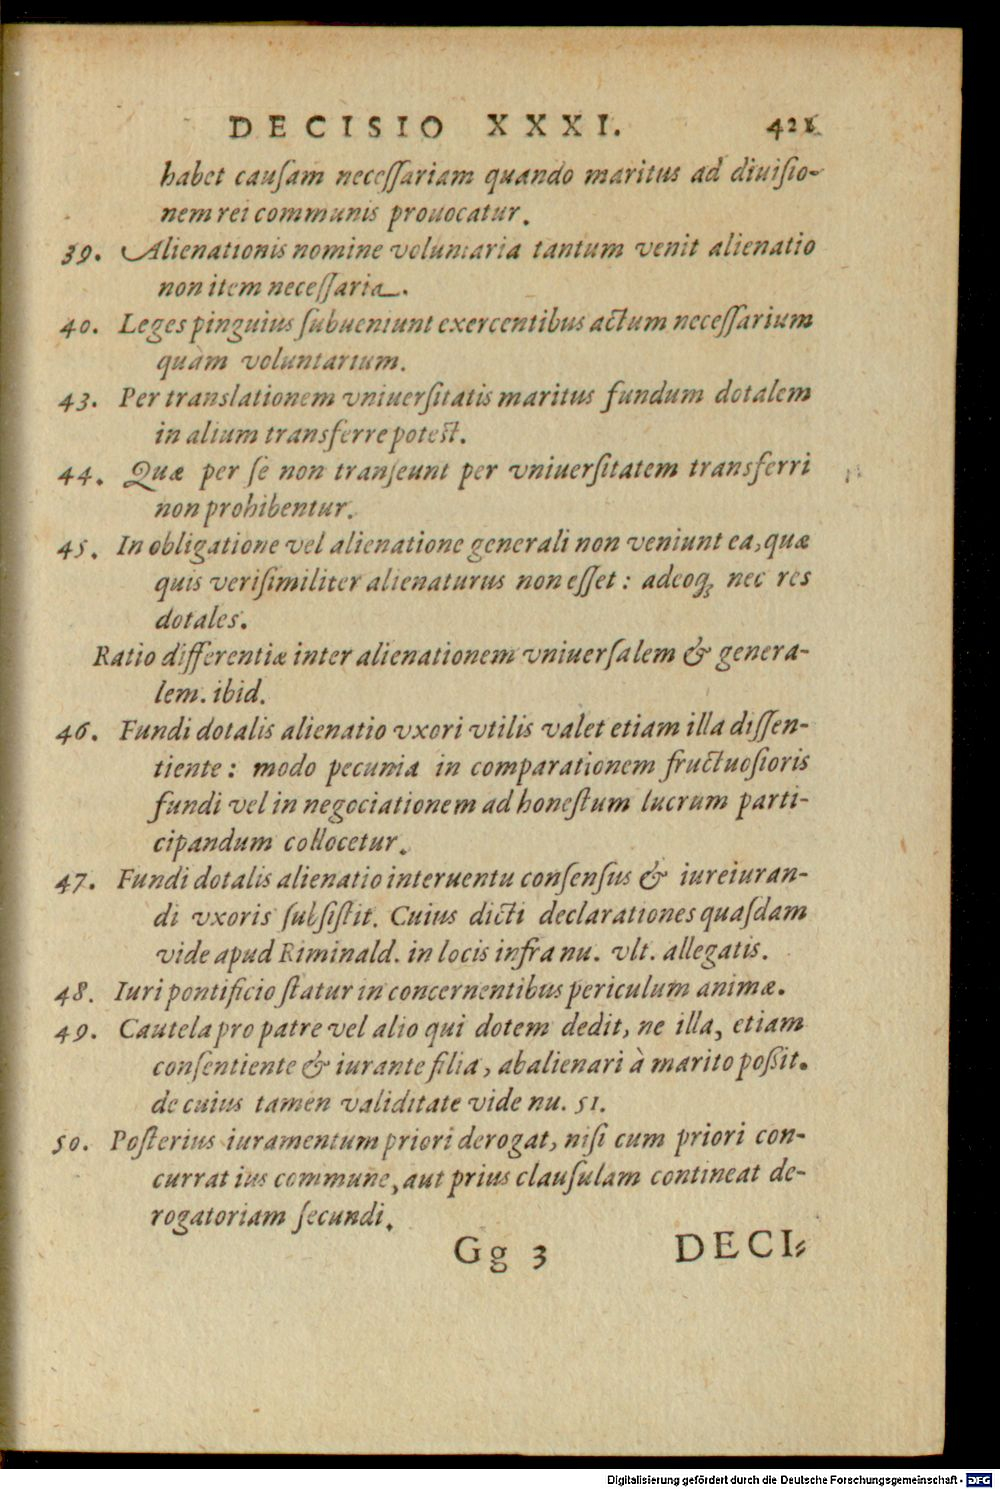 DECISIO XXXI. 421
habet cauſam neceſſariam quando maritus ad diuiſio-
nem rei communis prouocatur.
39. Alienationis nomine voluntaria tantum venit alienatio
non item neceſſaria.
40. Leges pinguius ſubueniunt exercentibus actum neceſſarium
quàm voluntarium.
43. Per translationem vniuerſitatis maritus fundum dotalem
in alium transferre poteſt.
44. Quæ per ſe non tranſeunt per vniuerſitatem transferri
non prohibentur.
45. In obligatione vel alienatione generali non veniunt ea, quæ
quis veriſimiliter alienaturus non eſſet: adeoq; nec res
dotales.
Ratio differentiæ inter alienationem vniuerſalem & genera-
lem. ibid.
46. Fundi dotalis alienatio vxori vtilis valet etiam illa diſſen-
tiente: modo pecunia in comparationem fructuoſioris
fundi vel in negociationem ad honeſtum lucrum parti-
cipandum collocetur.
47. Fundi dotalis alienatio interuentu conſenſus & iureiuran-
di vxoris ſubſiſtit. Cuius dicti declarationes quaſdam
vide apud Riminald. in locis infra nu. vlt. allegatis.
48. Iuri pontificio ſtatur in concernentibus periculum animæ.
49. Cautela pro patre vel alio qui dotem dedit, ne illa, etiam
conſentiente & iurante filia, abalienari à marito poßit.
de cuius tamen validitate vide nu. 51.
50. Poſterius iuramentum priori derogat, niſi cum priori con-
currat ius commune, aut prius clauſulam contineat de-
rogatoriam ſecundi.
Gg 3 DECI-
Digitalisierung gefördert durch die Deutsche Forschungsgemeinschaft - DFG